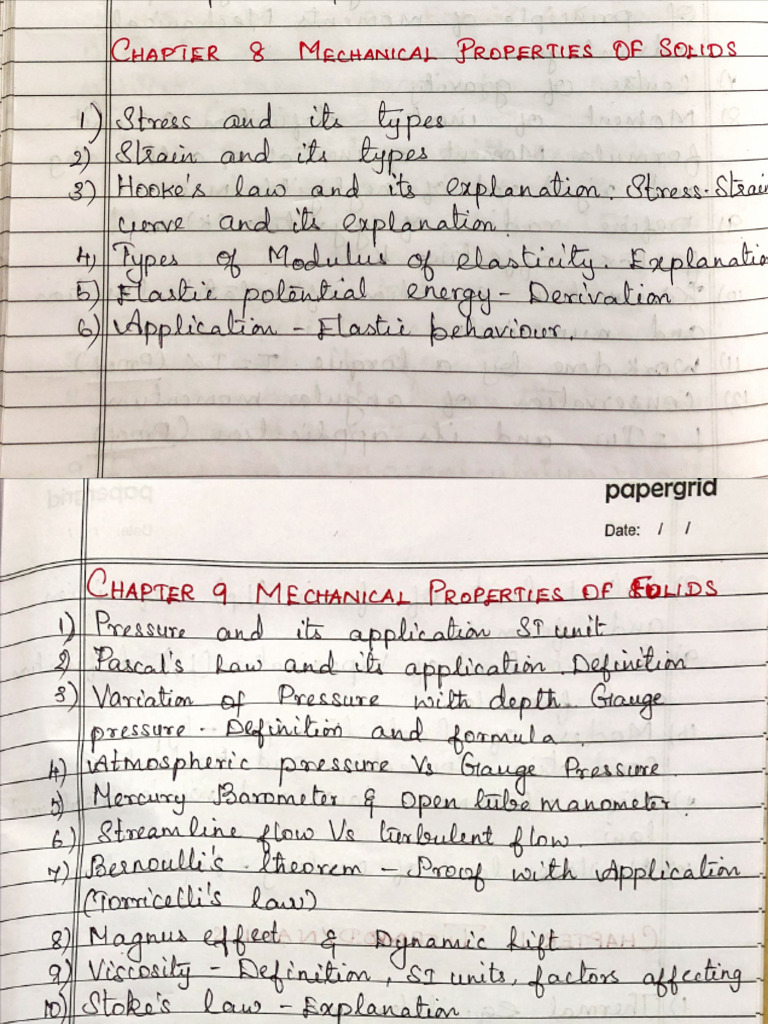 CHAPTER 8 MECHANICAL PROPERTIES OF SOLIDS
1) Stress and its types
2) Strain and its types
3) Hooke's law and its explanation. Stress-Strain
curve and its explanation.
4) Types of Modulus of elasticity. Explanatio
5) Elastic potential energy - Derivation
6) Application - Elastic behaviour.
papergrid
Date: / /
CHAPTER 9 MECHANICAL PROPERTIES OF SOLIDS
1) Pressure and its application SI unit
2) Pascal's Law and its application. Definition
3) Variation of Pressure with depth. Gauge
pressure - Definition and formula.
4) Atmospheric pressure Vs Gauge Pressure.
5) Mercury Barometer & Open tube manometer.
6) Streamline flow Vs turbulent flow.
7) Bernoulli's theorem - Proof with Application
(Torricelli's law)
8) Magnus effect & Dynamic Lift
9) Viscosity - Definition, SI units, factors affecting
10) Stoke's law - Explanation